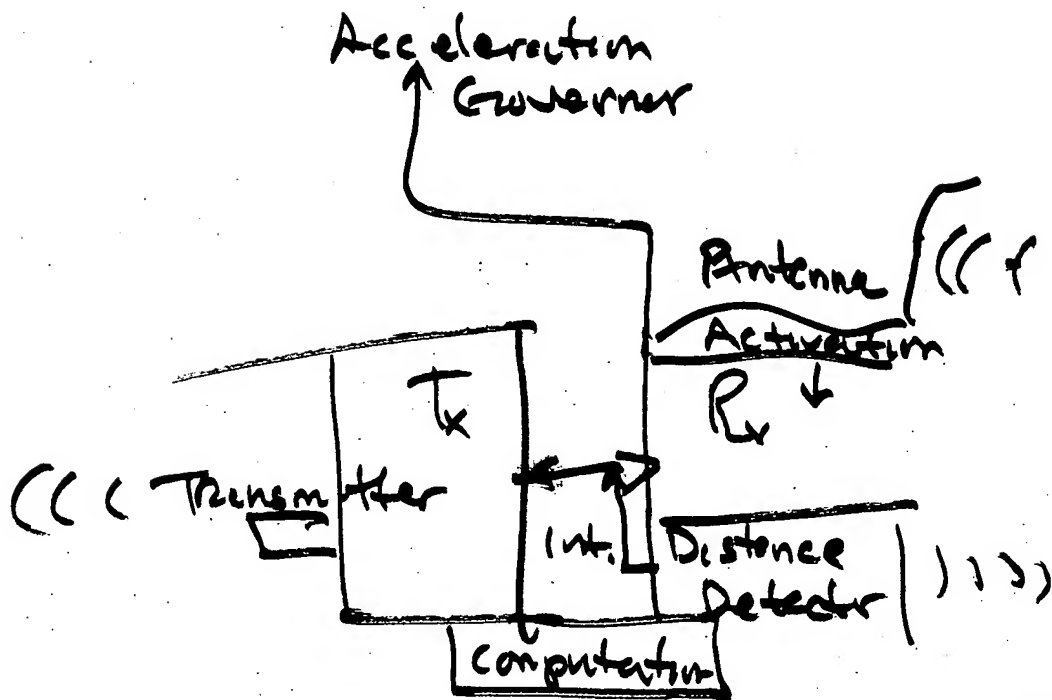 Acceleration
Governer
Antenna
Activation
Tx
Transmitter
Int.
Distance
Detector
Computation